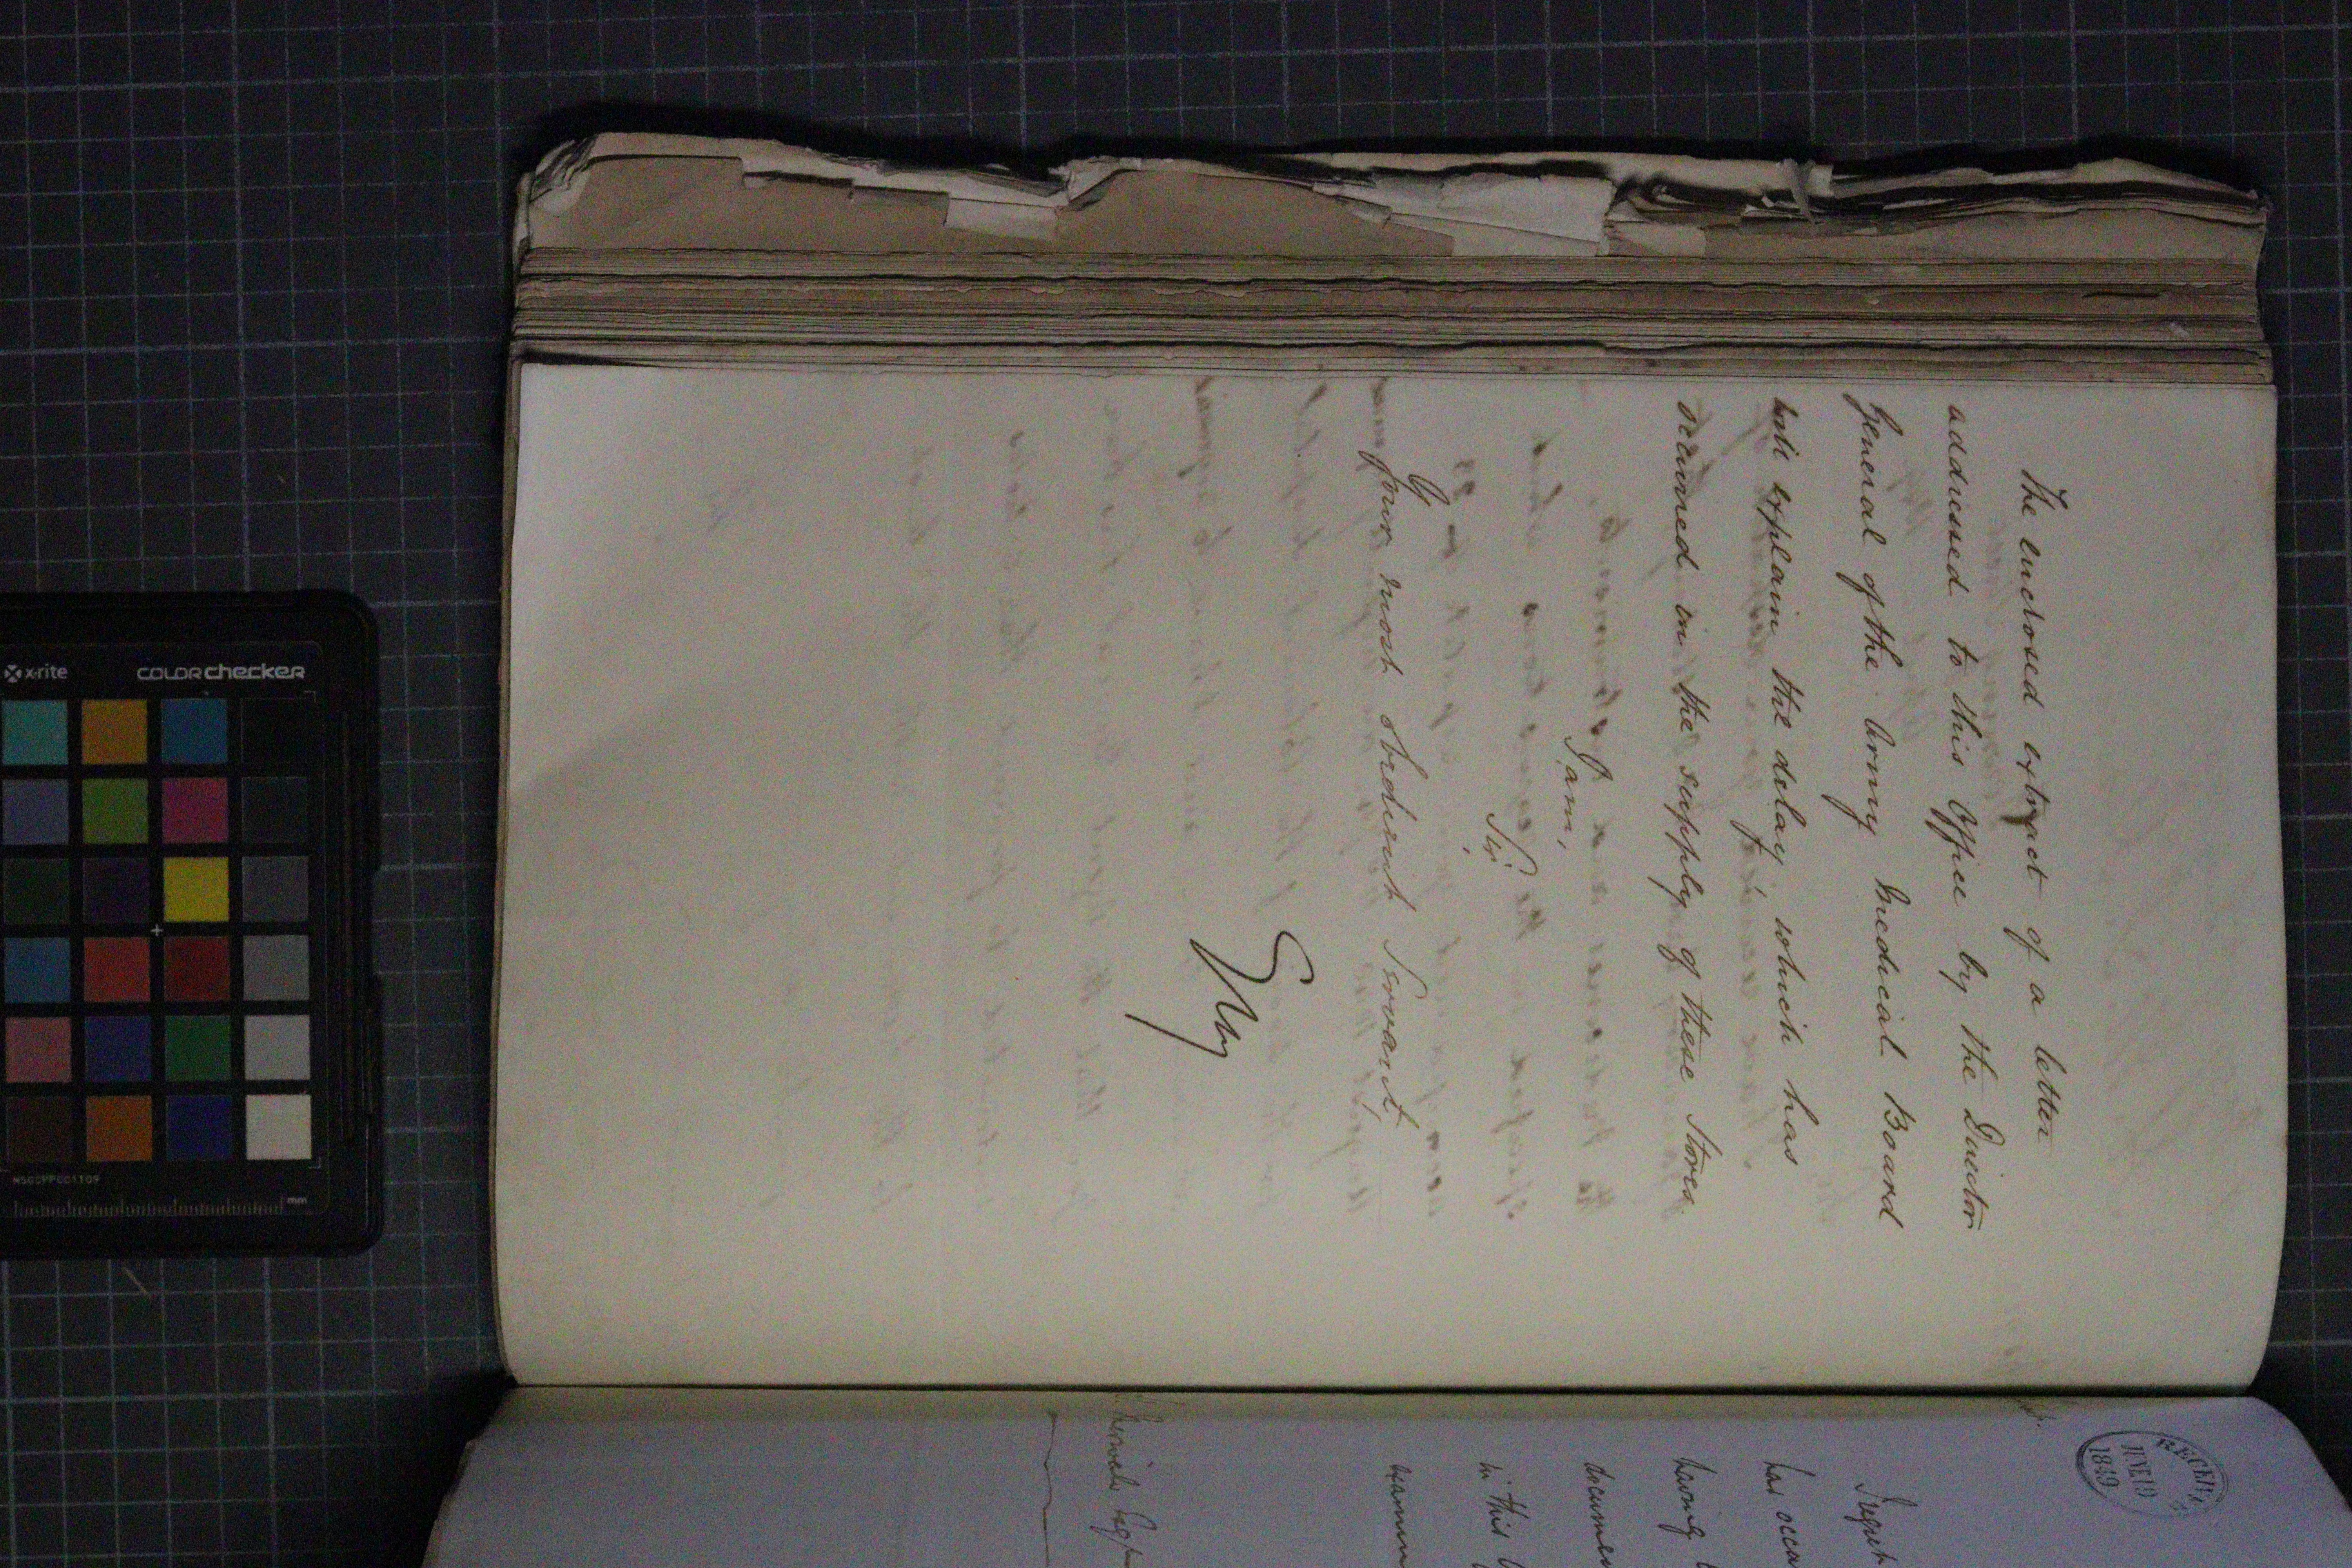 The enclosed extract of a letter
addressed to this Office by the Director
General of the Army Medical Board
will explain the delay which has
occurred in the supply of these Stores.
I am,
Sir,
Your most obedient Servant,
Grey
RECEIVED
JUNE 19
1849
I regret
has occa
having
documen
in this
x-rite
COLORchecker
mm